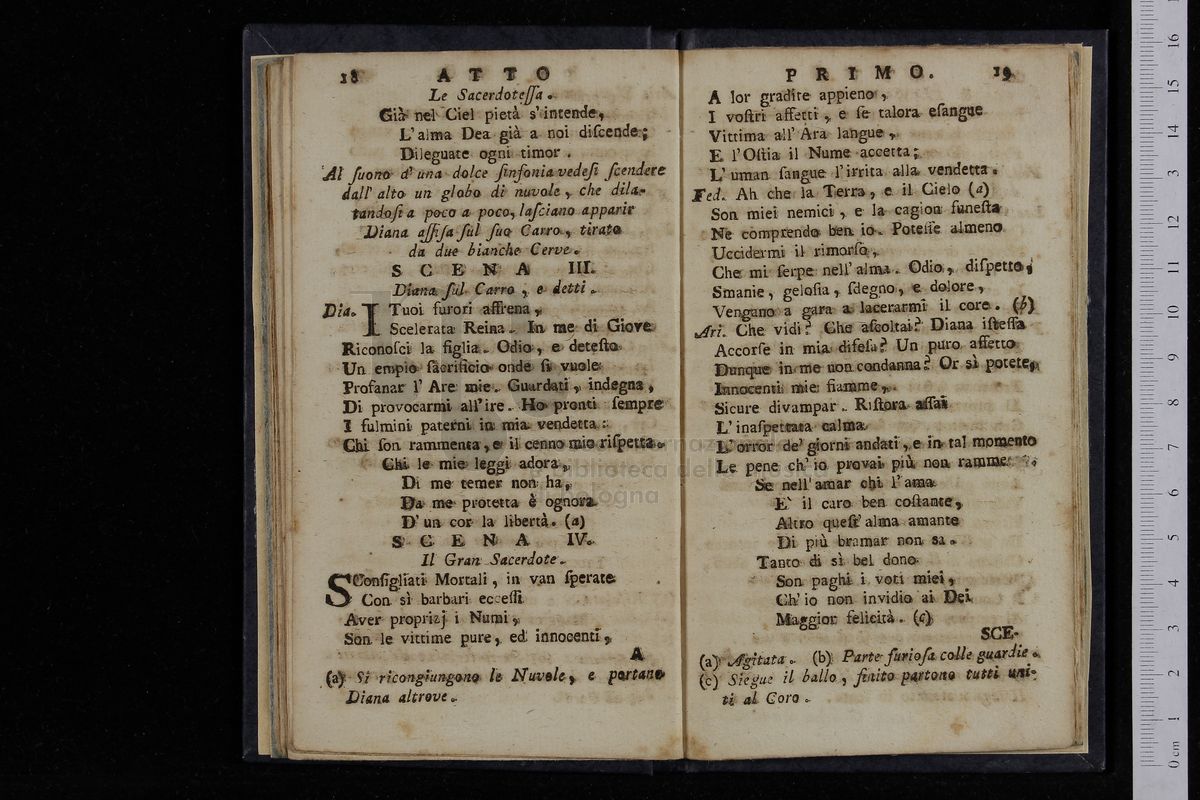 18 ATTO
Le Sacerdoteſſa.
Già nel Ciel pietà s'intende,
L'alma Dea già a noi diſcende;
Dileguate ogni timor.
Al ſuono d'una dolce ſinfonia vedeſi ſcendere
dall'alto un globo di nuvole, che dila-
tandoſi a poco a poco, laſciano apparir
Diana aſſiſa ſul ſuo Carro, tirato
da due bianche Cerve.
SCENA III.
Diana ſul Carro, e detti.
Dia. I Tuoi furori affrena,
Scelerata Reina. In me di Giove
Riconoſci la figlia. Odio, e deteſto
Un empio ſacrificio onde ſi vuole
Profanar l'Are mie. Guardati, indegna,
Di provocarmi all'ire. Ho pronti ſempre
I fulmini paterni in mia vendetta:
Chi ſon rammenta, e il cenno mio riſpetta.
Chi le mie leggi adora,
Di me temer non ha,
Da me protetta è ognora
D'un cor la libertà. (a)
SCENA IV.
Il Gran Sacerdote.
SConſigliati Mortali, in van ſperate
Con sì barbari ecceſſi
Aver proprizj i Numi,
Son le vittime pure, ed innocenti,
A
(a) Si ricongiungono le Nuvole, e portano
Diana altrove.
PRIMO. 19
A lor gradite appieno,
I voſtri affetti, e ſe talora eſangue
Vittima all'Ara langue,
E l'Oſtia il Nume accetta;
L'uman ſangue l'irrita alla vendetta.
Fed. Ah che la Terra, e il Cielo (a)
Son miei nemici, e la cagion funeſta
Ne comprendo ben io. Poteſſe almeno
Uccidermi il rimorſo,
Che mi ſerpe nell'alma. Odio, diſpetto,
Smanie, geloſia, ſdegno, e dolore,
Vengano a gara a lacerarmi il core. (b)
Ari. Che vidi? Che aſcoltai? Diana iſteſſa
Accorſe in mia difeſa? Un puro affetto
Dunque in me non condanna? Or sì potete,
Innocenti mie fiamme,
Sicure divampar. Riſtora aſſai
L'inaſpettata calma
L'orror de' giorni andati, e in tal momento
Le pene ch'io provai più non ramme
Se nell'amar chi l'ama
E' il caro ben coſtante,
Altro queſt'alma amante
Di più bramar non sa.
Tanto di sì bel dono
Son paghi i voti miei,
Ch'io non invidio ai Dei
Maggior felicità. (c)
SCE-
(a) Agitata. (b) Parte furioſa colle guardie.
(c) Siegue il ballo, finito partono tutti uni-
ti al Coro.